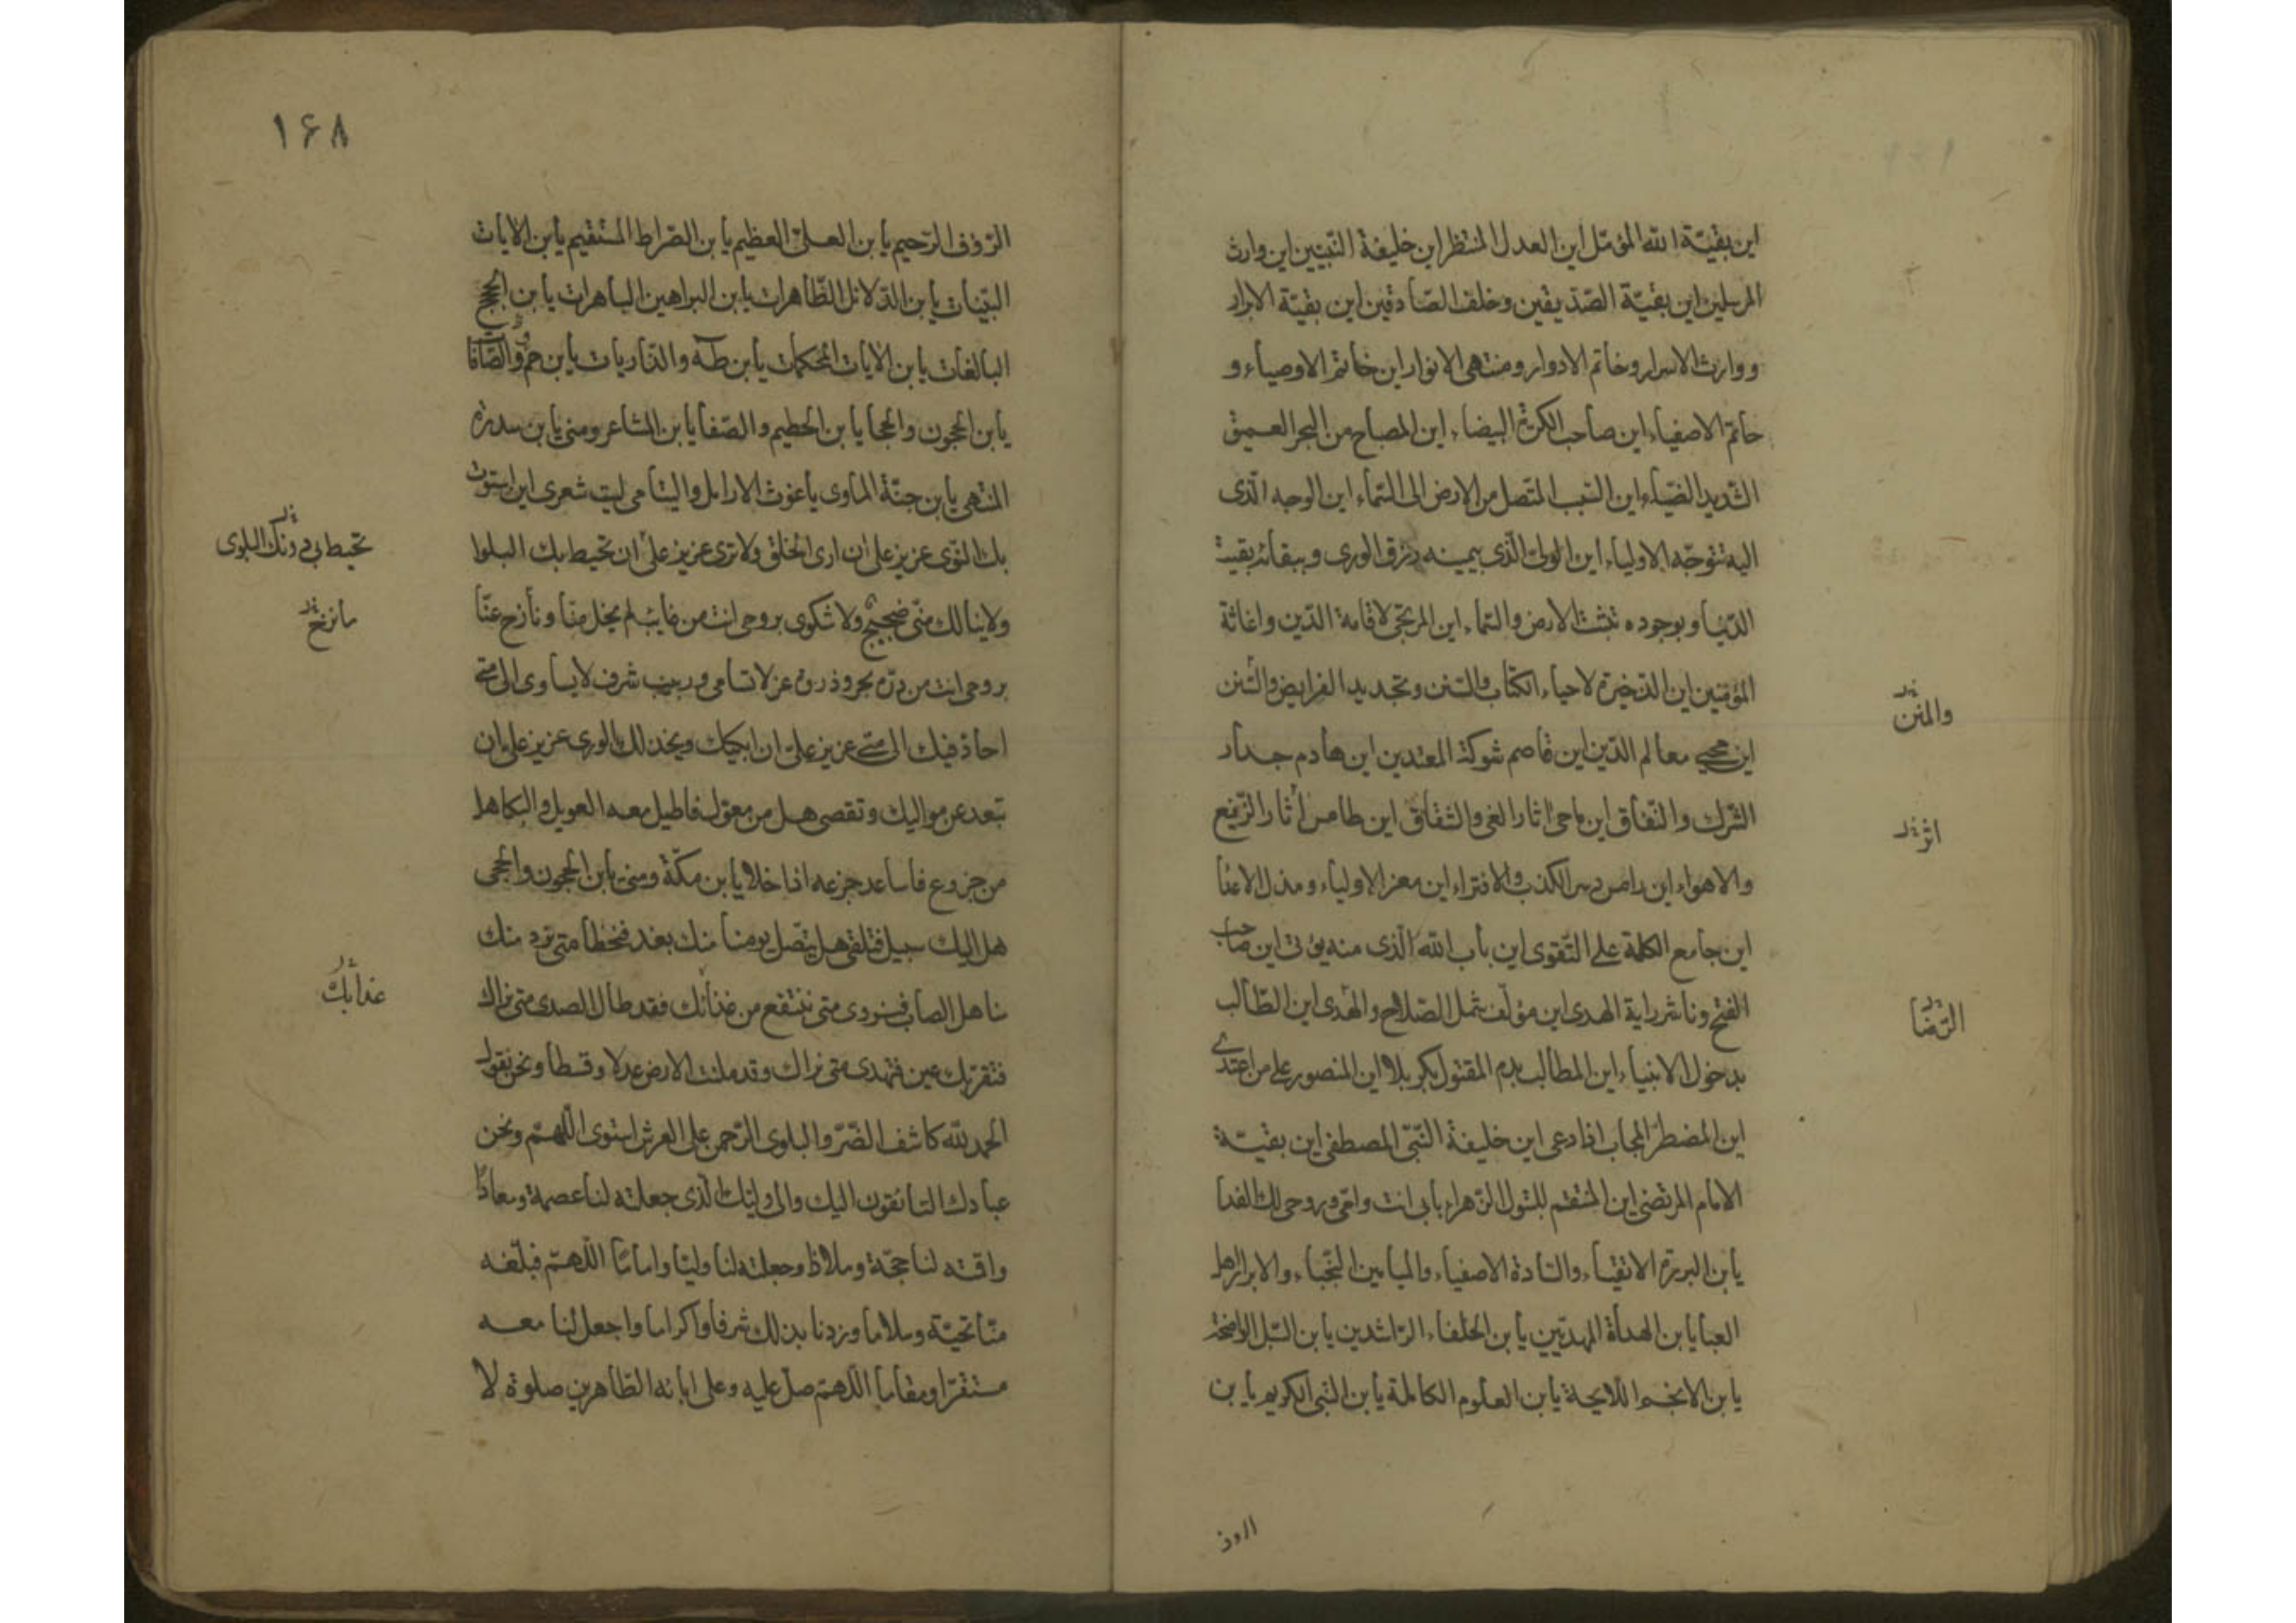 اين بقيّة الله المؤمّل اين العدل المنتظر اين خليفة النّبيّين اين وارث
المرسلين اين بقيّة الصّدّيقين وخلف الصّادقين اين بقيّة الابرار
ووارث الاسرار وخاتم الادوار ومنتهى الانوار اين خاتم الاوصياء و
خاتم الاصفياء اين صاحب الكرّة البيضاء اين المصباح من البحر العميق
الشّديد الضّياء اين السّبب المتّصل من الارض الى السّماء اين الوجه الّذى
اليه تتوجّه الاولياء اين الولىّ الّذى بيمينه رزق الورى وببقائه بقيت
الدّنيا وبوجوده تثبت الارض والسّماء اين المرتجى لاقامة الدّين واغاثة
المؤمنين اين الذّخيرة لاحياء الكتاب والسّنن وتجديد الفرايض والسّنن
والمنن
اين محيى معالم الدّين اين قاصم شوكة المعتدين اين هادم جدار
الشّرك والنّفاق اين ماحى اثار الغى والشقاق اين طامس أثار الزّيغ
اثر
والاهواء اين دامس الكذب والافتراء اين معز الاولياء ومذل الاعدا
اين جامع الكلمة على التّقوى اين باب الله الّذى منه يؤتى اين صاحب
الفتح وناشر راية الهدى اين مؤلّف شمل الصّلاح والهدى اين الطّالب
الرّضا
بدخول الانبياء اين المطالب بدم المقتول بكربلا اين المنصور على من اعتدى
اين المضطرّ المجاب اذا دعى اين خليفة النّبىّ المصطفى اين بقيّة
الامام المرتضى اين المنتقم للبتول الزّهراء بابى انت وامّى وروحى لك الفدا
يابن البررة الاتقياء والسّادة الاصفياء والميامين النّجباء والابرار اهل
العبا يابن الهداة المهديّين يابن الخلفاء الرّاشدين يابن السّبل الواضحة
يابن الانجم اللايحة يابن العلوم الكاملة يابن النّبى الكريم يابن
الروف
١۶٨
الرّؤف الرّحيم يابن العلىّ العظيم يابن الصّراط المستقيم يابن الايات
البيّنات يابن الدّلائل الظّاهرات يابن البراهين الباهرات يابن الحجج
البالغات يابن الايات المحكمات يابن طه والذّاريات يابن حم والصّافات
يابن الحجون والحجا يابن الحطيم والصّفا يابن المشاعر ومنى يابن سدرة
المنتهى يابن جنّة الماوى ياغوث الارامل واليتامى ليت شعرى اين استوت
بك النّوى عزيز علىّ ان ارى الخلق ولا ترى عزيز علىّ ان تحيط بك البلوا
تحيط بى دونك البلوى
ولاينالك منّى ضجيج ولاشكوى بروحى انت من غايب لم يخل منّا ونازح عنّا
ما نزح
بروحى انت من درّة بحر وذروة عز لاتسامى وربيب شرف لايساوى الى متى
احاذ فيك الى متى عزيز علىّ ان ابكيك ويخذلك الورى عزيز علىّ ان
تبعد عن مواليك وتقصى هل من معول فاطيل معه العويل والبكا هل
من جزوع فاساعد جزعه اذا خلا يابن مكّة ومنى يابن الحجون والحجى
هل اليك سبيل فتلقى هل يتّصل يومنا منك بغد فنحظا متى نرد منك
مناهل الصاب فنروى متى ننتفع من غنائك فقد طال الصدى متى نراك
عذابك
فتقرّ بك عين فنهدى متى نراك وقد ملئت الارض عدلا وقسطا ونحن نقول
الحمد لله كاشف الضّرّ والبلوى الرّحمن على العرش استوى اللّهمّ ونحن
عبادك التائقون اليك والى وليّك الّذى جعلته لنا عصمة ومعاذا
واقمته لنا حجّة وملاذا وجعلته لنا وليّا واماما اللّهمّ فبلّغه
منّا تحيّة وسلاما وزدنا بذلك شرفا واكراما واجعل لنا معه
مستقرّا ومقاما اللّهمّ صلّ عليه وعلى ابائه الطّاهرين صلوة لا